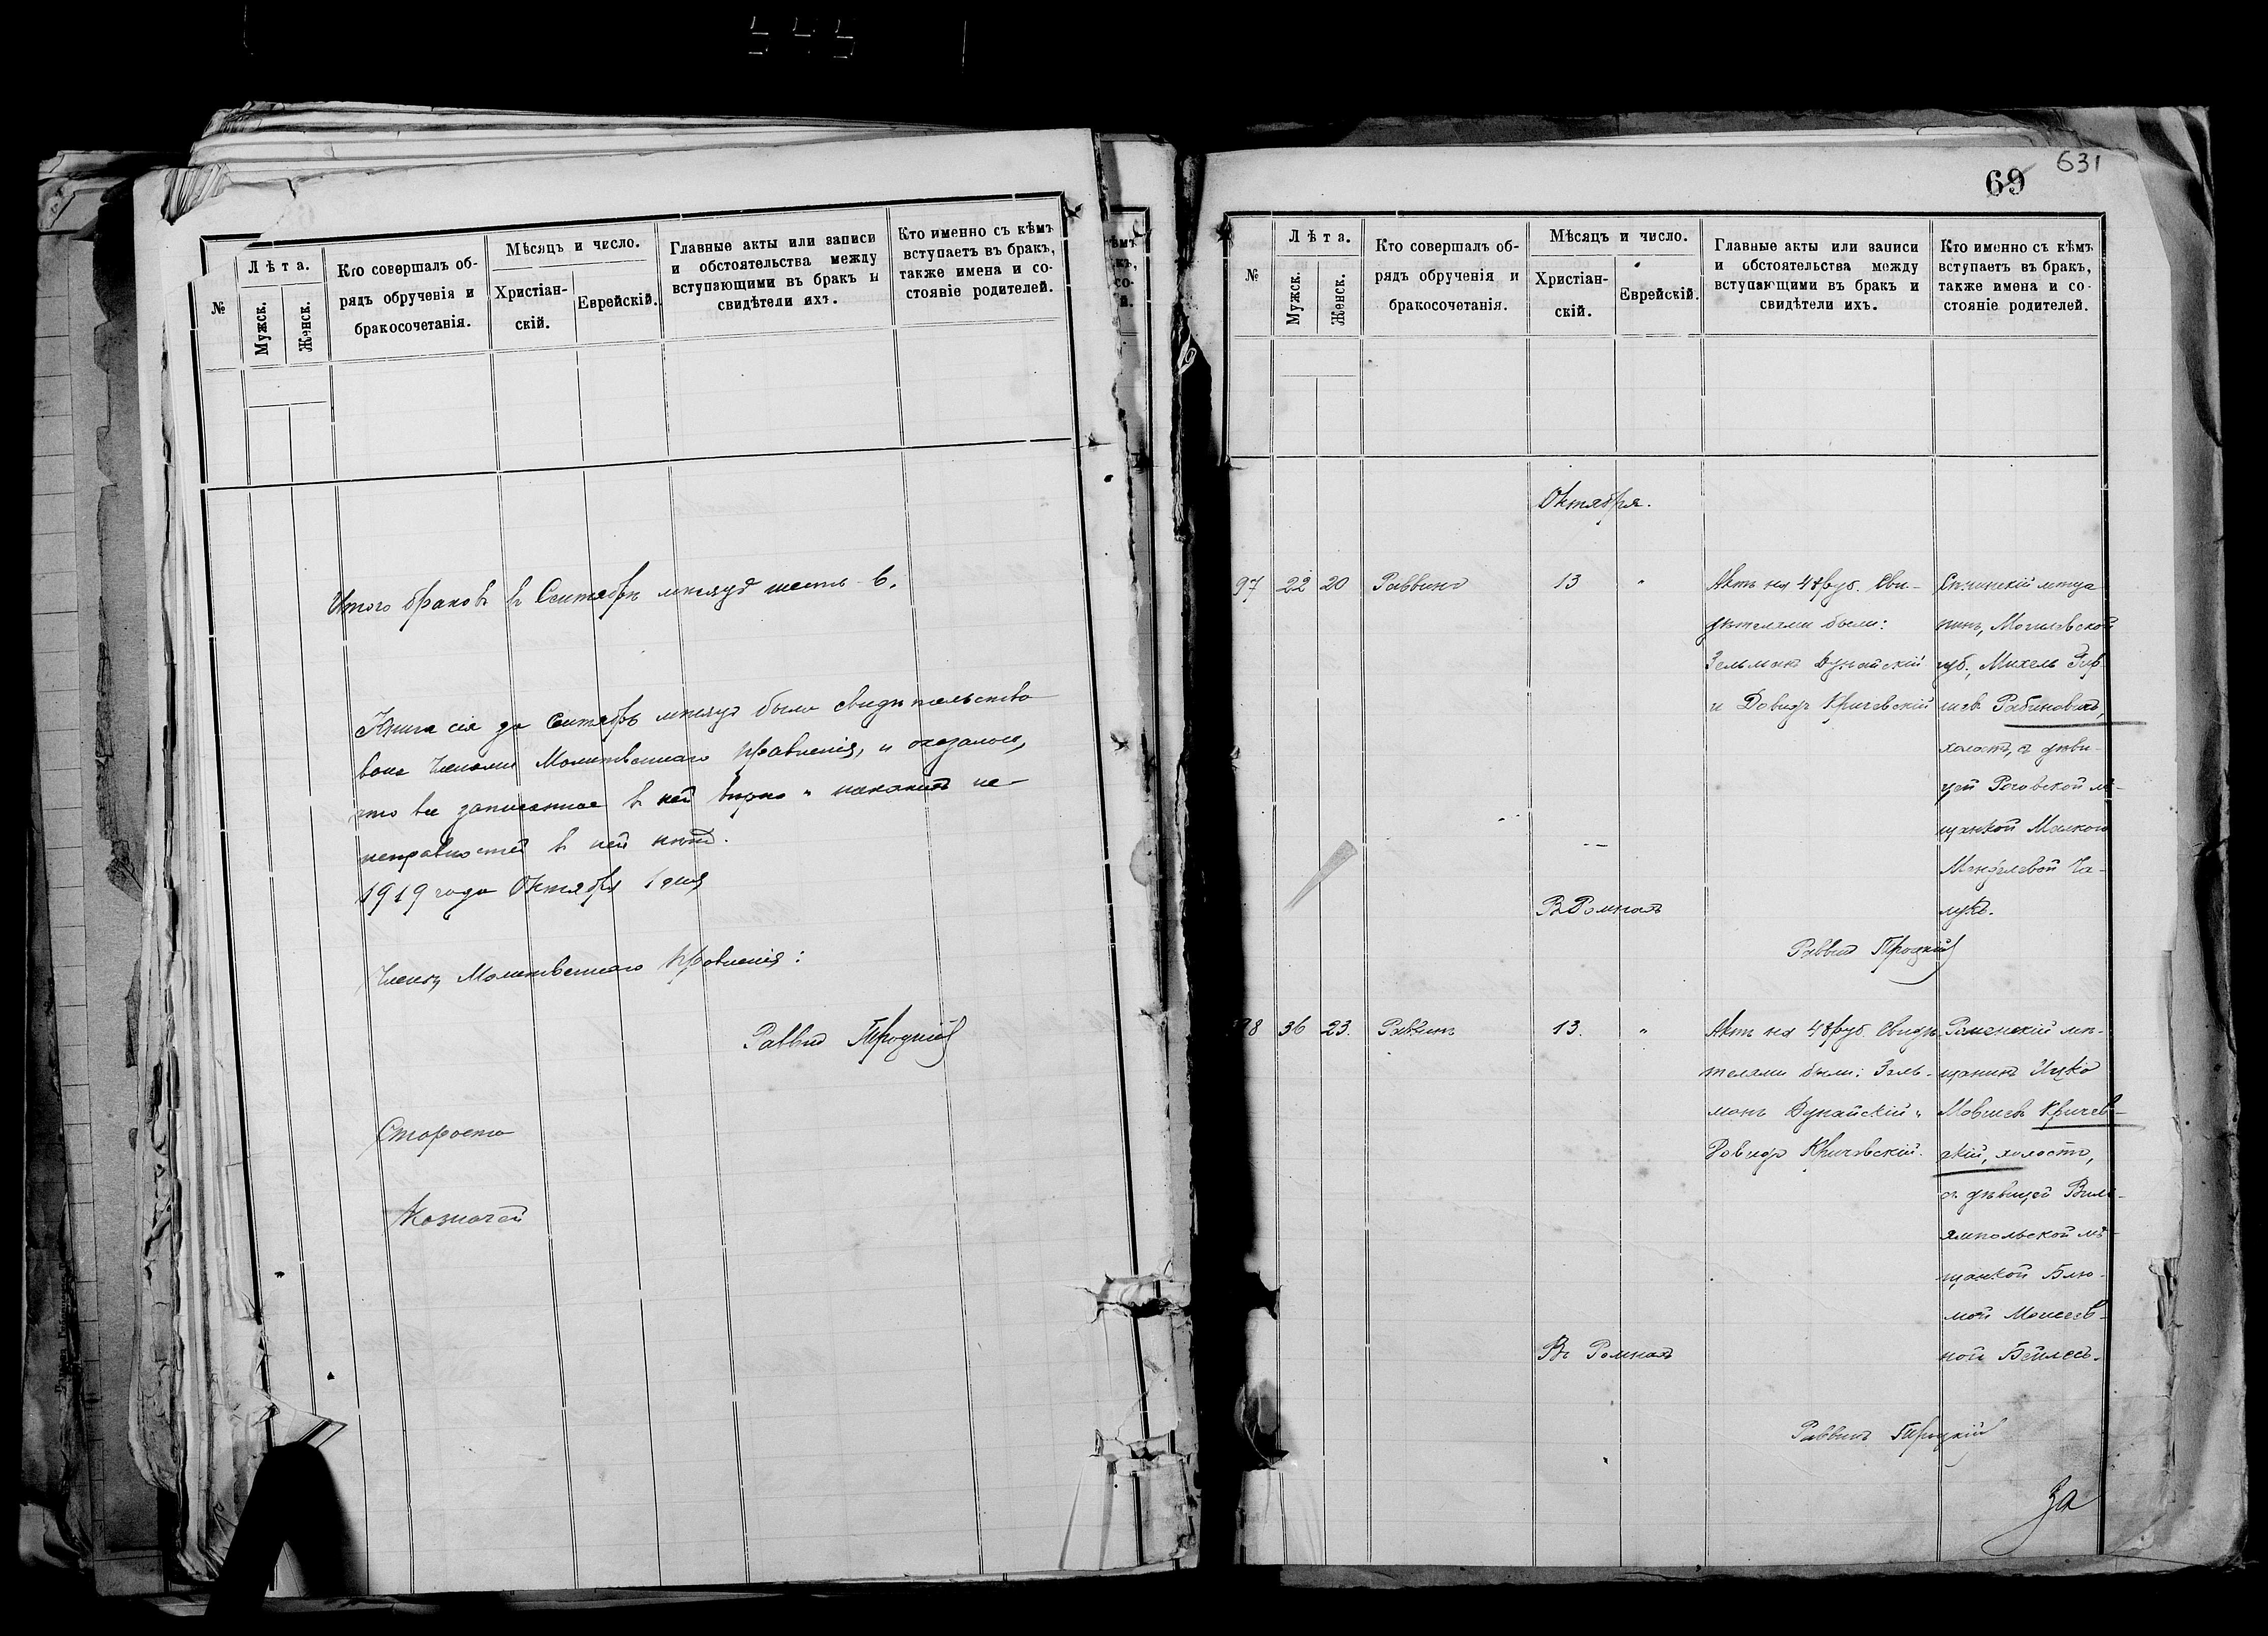 545
№
Лѣта.
Мужск.
Женск.
Кто совершалъ об-
рядъ обрученія и
бракосочетанія.
Мѣсяцъ и число.
Христіан-
скій.
Еврейскій.
Главные акты или записи
и обстоятельства между
вступающими въ бракъ и
свидѣтели ихъ.
Кто именно съ кѣмъ
вступаетъ въ бракъ,
также имена и со-
стояніе родителей.
Итого браковъ въ Сентябрѣ мѣсяцѣ шесть - 6.
Книга сія за Сентябрь мѣсяцъ была свидѣтельство
вана Членами Молитвеннаго Правленія, и оказалось,
что все записанное въ ней вѣрно и никакихъ не-
исправностей въ ней нѣтъ.
1919 года Октября 1 дня
Члены Молитвеннаго Правленія:
Раввинъ Троцкій
Староста
Казначей
631
69
№
Лѣта.
Мужск.
Женск.
Кто совершалъ об-
рядъ обрученія и
бракосочетанія.
Мѣсяцъ и число.
Христіан-
скій.
Еврейскій.
Главные акты или записи
и обстоятельства между
вступающими въ бракъ и
свидѣтели ихъ.
Кто именно съ кѣмъ
вступаетъ въ бракъ,
также имена и со-
стояніе родителей.
Октября.
97 22 20 Раввинъ 13 "
Актъ на 48 руб. Сви-
дѣтелями были:
Зельманъ Дунайскій
и Довидъ Кричевскій
мѣща-
нинъ, Могилевской
губ., Михель Гир-
шевъ Рабиновичъ,
холостъ, съ дѣви-
цей Роговской мѣ-
щанкой
Менделевой Ча-
Въ Ромнахъ
Раввинъ Троцкій
98 36 23. Раввинъ 13. "
Актъ на 48 руб. Свидѣ-
телями были: Зель-
манъ Дунайскій и
Довидъ Кричевскій.
Роменскій мѣ-
щанинъ Ицко
Мовшевъ Кричев-
скій, холостъ,
съ дѣвицей Вили-
ямпольской мѣ-
щанкой Блю-
мой Моисеев-
ной Бейлесъ.
Въ Ромнахъ
Раввинъ Троцкій
За